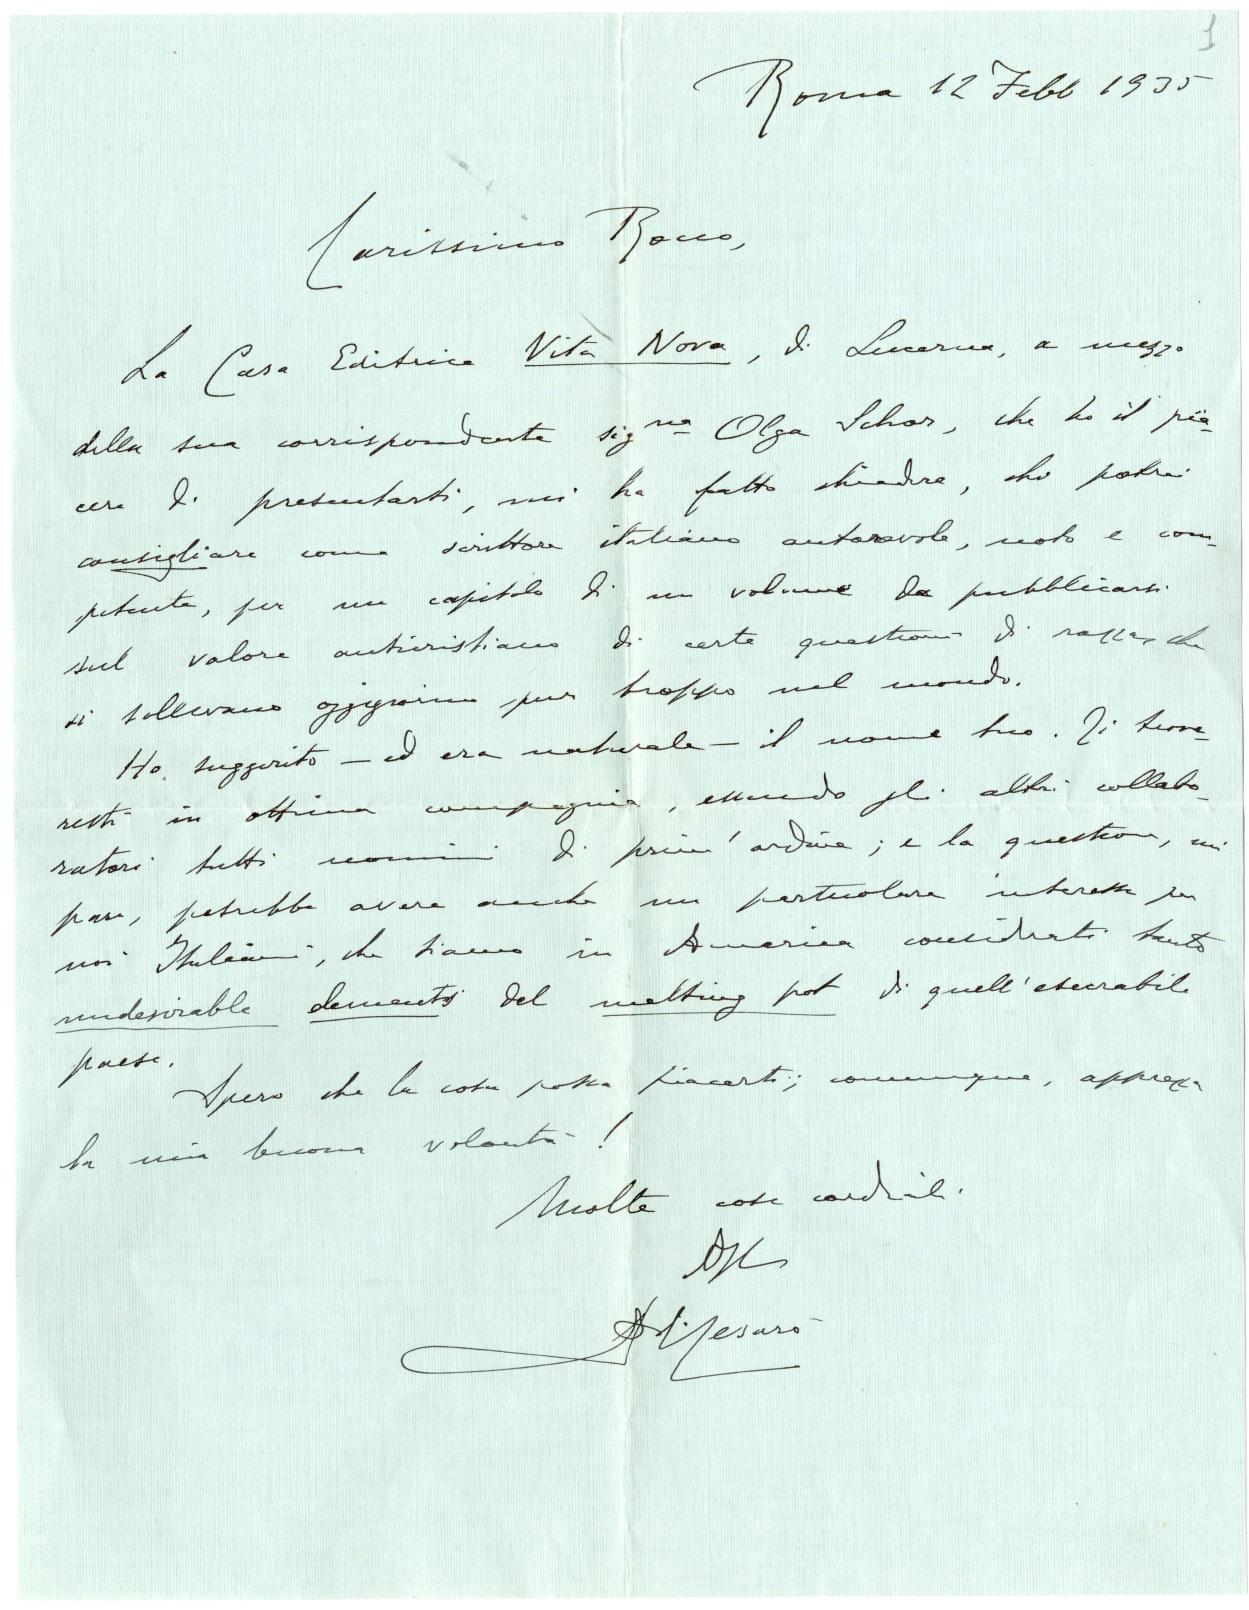 1
Roma 12 Febb 1935
Carissimo Rocco,
La Casa Editrice Vita Nova, di Lucerna, a mezzo
della sua corrispondente sig.na Olga Schor, che ho il pia-
cere di presentarti, mi ha fatto chiedere, chi potrei
consigliare come scrittore italiano autorevole, noto e com-
petente, per un capitolo di un volume da pubblicarsi
sul valore anticristiano di certe questioni di razza, che
si sollevano oggigiorno pur troppo nel mondo.
Ho suggerito — ed era naturale — il nome tuo. Ti trove-
resti in ottima compagnia, essendo gli altri collabo-
ratori tutti uomini di prim'ordine; e la questione, mi
pare, potrebbe avere anche un particolare interesse per
noi Italiani, che siamo in America considerati tanto
undesirable elements del melting pot di quell'esecrabile
paese.
Spero che la cosa possa piacerti; comunque, apprezza
la mia buona volontà!
Molte cose cordiali.